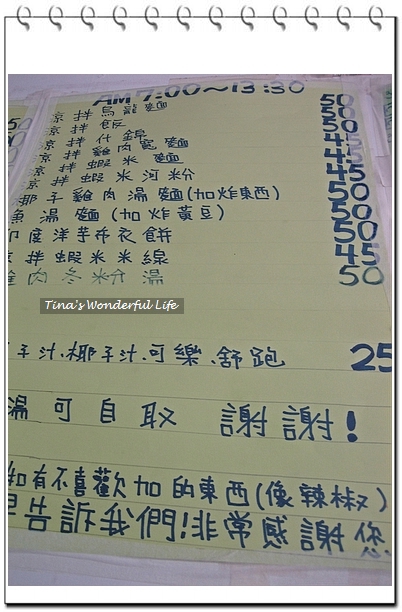 AM 7:00～13:30
涼拌烏龍麵 50
涼拌飯 50
涼拌什錦 50
涼拌雞肉寬麵 45
涼拌蝦米麵 45
涼拌蝦米河粉 45
椰子雞肉湯麵(加炸東西) 50
魚湯麵(加炸黃豆) 50
印度洋芋布衣餅 50
涼拌蝦米米線 45
雞肉冬粉湯 50
Tina's Wonderful Life
子汁、椰子汁、可樂、舒跑 25
湯可自取 謝謝!
如有不喜歡加的東西(像辣椒)
告訴我們!非常感謝您